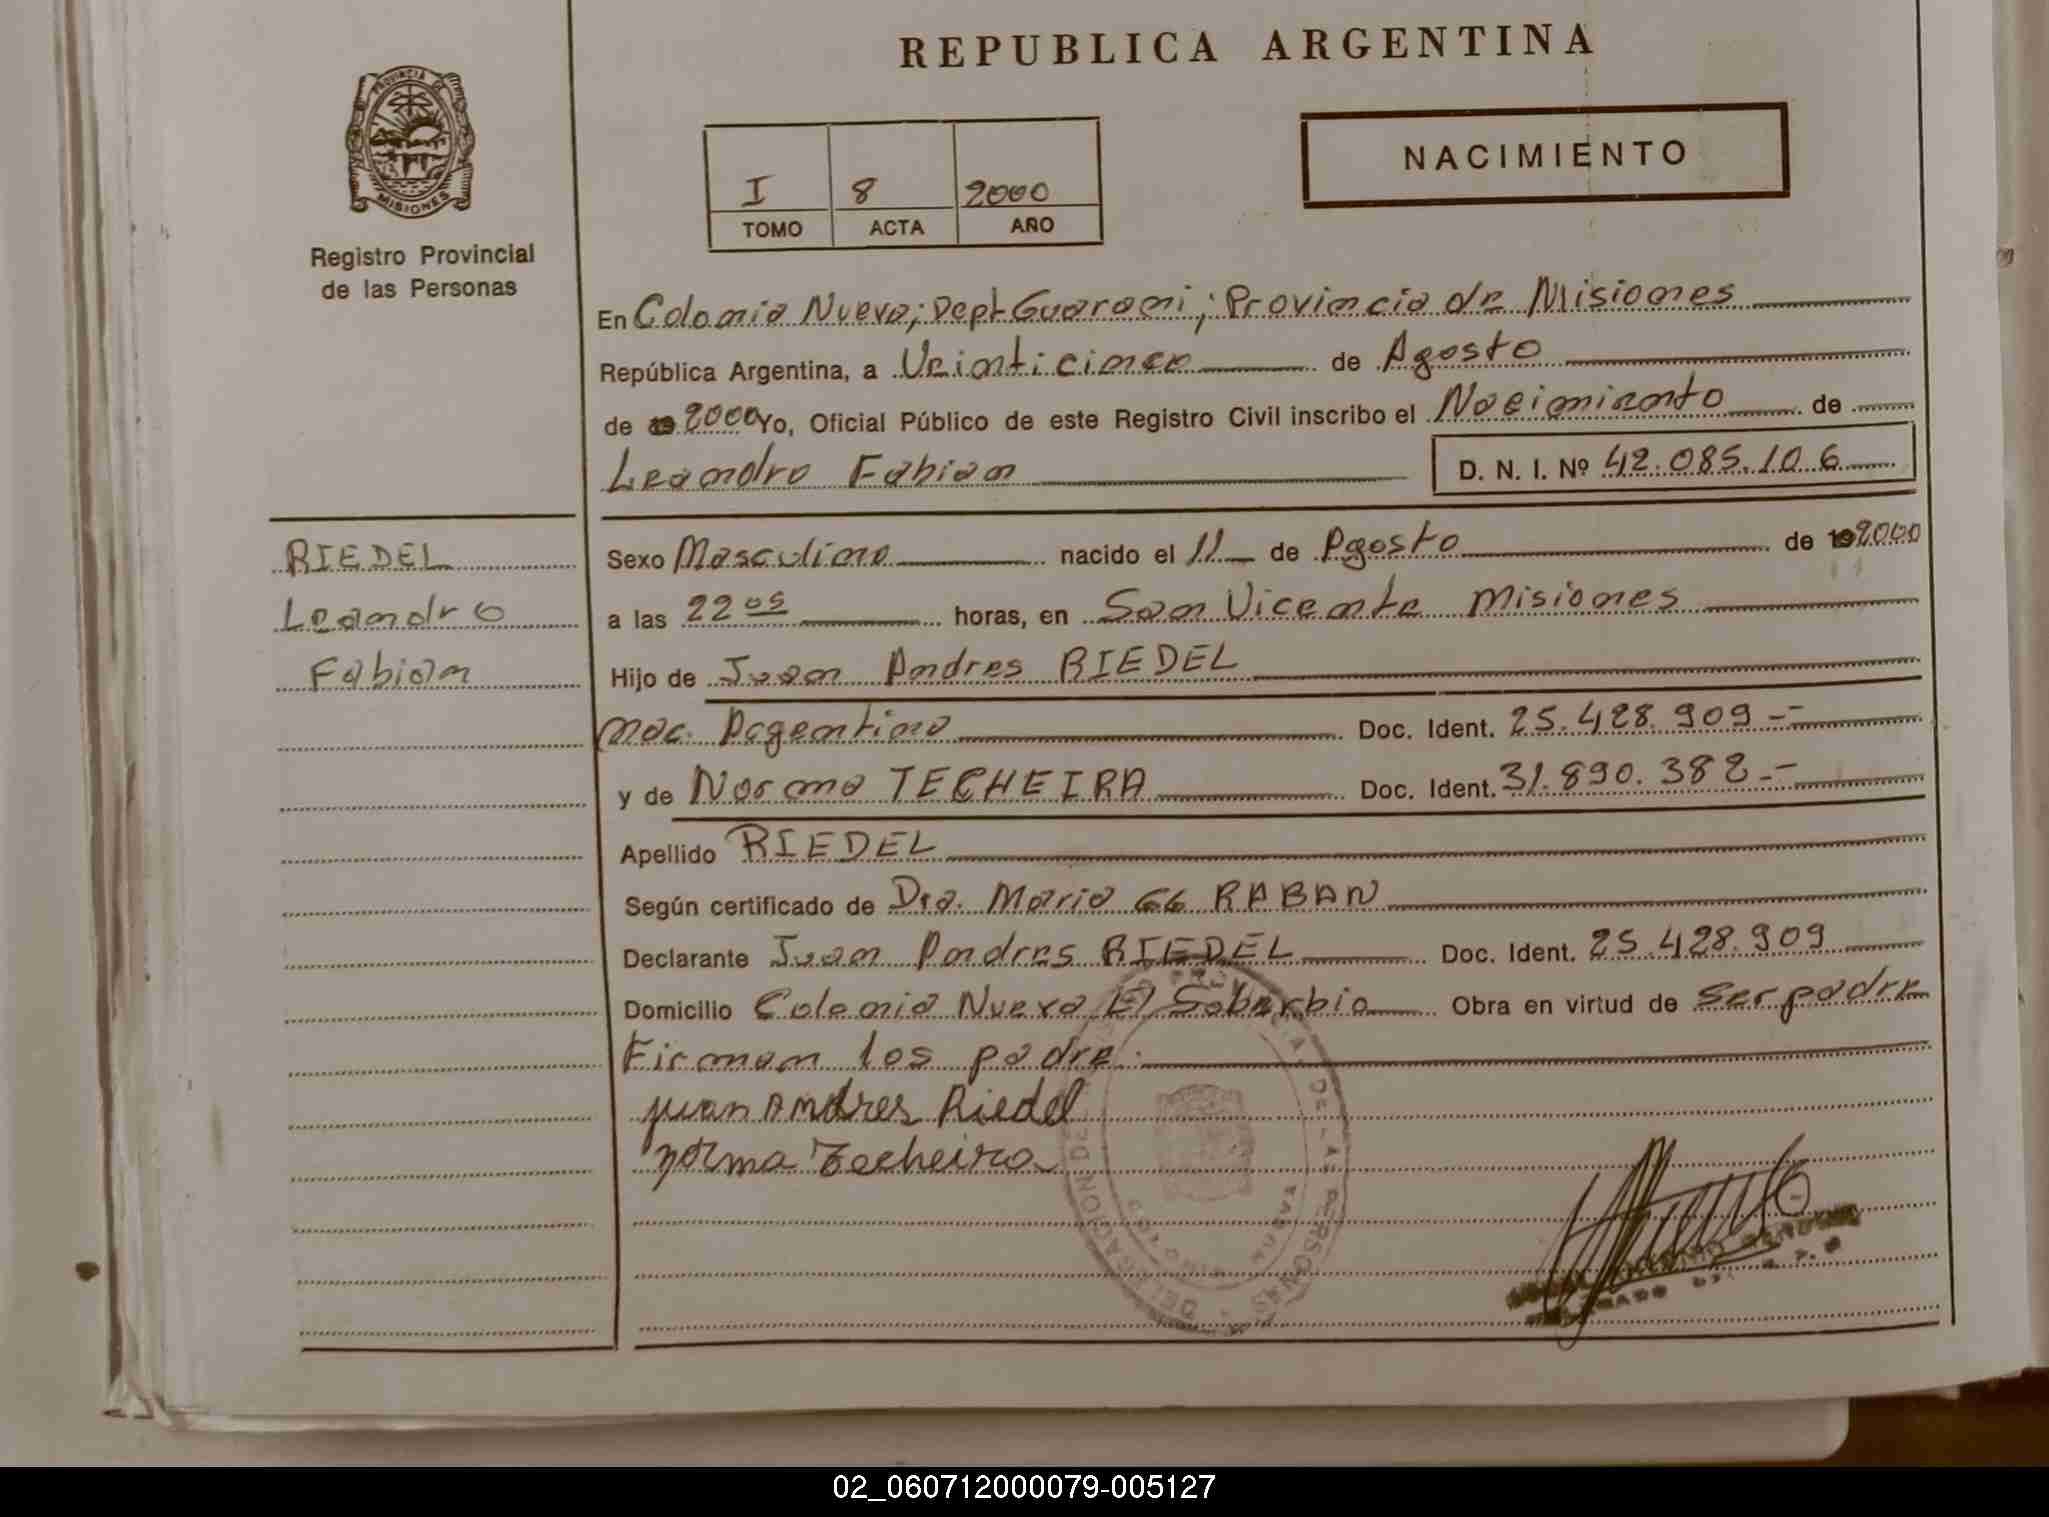 REPUBLICA ARGENTINA
PROVINCIA DE
MISIONES
Registro Provincial
de las Personas
I 8 2000
TOMO ACTA AÑO
NACIMIENTO
En Colonia Nueva; Dept Guarani; Provincia de Misiones
República Argentina, a Veinticinco de Agosto
de 19 2000 Yo, Oficial Público de este Registro Civil inscribo el Nacimiento de
Leandro Fabian D. N. I. Nº 42.085.106
RIEDEL
Leandro
Fabian
Sexo Masculino nacido el 11 de Agosto de 19 2000
a las 22 05 horas, en San Vicente Misiones
Hijo de Juan Andres RIEDEL
nac. Argentino Doc. Ident. 25.428.909.--
y de Norma TECHEIRA Doc. Ident. 31.890.382.--
Apellido RIEDEL
Según certificado de Dra. Maria RABAN
Declarante Juan Andres RIEDEL Doc. Ident. 25.428.909
Domicilio Colonia Nueva El Soberbio Obra en virtud de ser padre
Firman los padre.
juan Andres Riedel
norma Techeira
DE LAS PERSONAS
DELEGACION
02_060712000079-005127